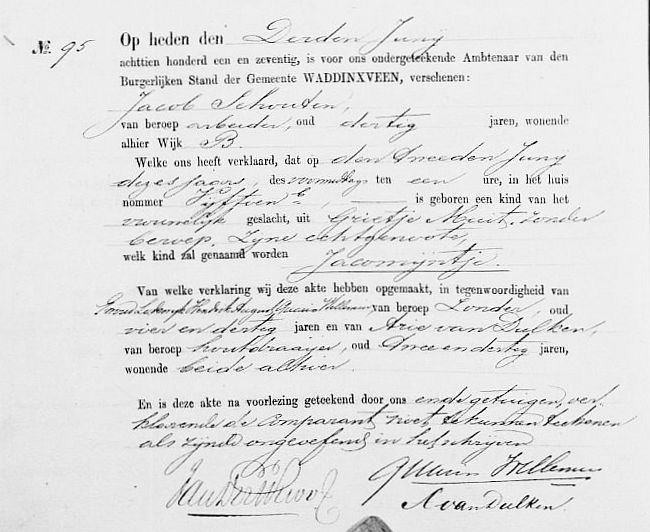 No. 95 Op heden den Derden Junij
achttien honderd een en zeventig, is voor ons ondergeteekende Ambtenaar van den
Burgerlijken Stand der Gemeente WADDINXVEEN, verschenen:
Jacob Schouten,
van beroep arbeider, oud dertig jaren, wonende
alhier Wijk B.
Welke ons heeft verklaard, dat op den tweeden Junij
dezes jaars, des voormiddags ten een ure, in het huis
nommer Vijftien E, is geboren een kind van het
vrouwelijk geslacht, uit Grietje Muit, zonder
beroep, Zijne echtgenoote,
welk kind zal genaamd worden Jacomijntje.
Van welke verklaring wij deze akte hebben opgemaakt, in tegenwoordigheid van
Lodewijk Hendrik August Willemin van beroep Zonder, oud
vier en dertig jaren en van Arie van Dulken,
van beroep houtdraaijer, oud twee en dertig jaren,
wonende beide alhier.
En is deze akte na voorlezing geteekend door ons en de getuigen, ver-
klarende de Comparant niet te kunnen teekenen
als zijnde ongeoefend in het schrijven
A van Dulken.